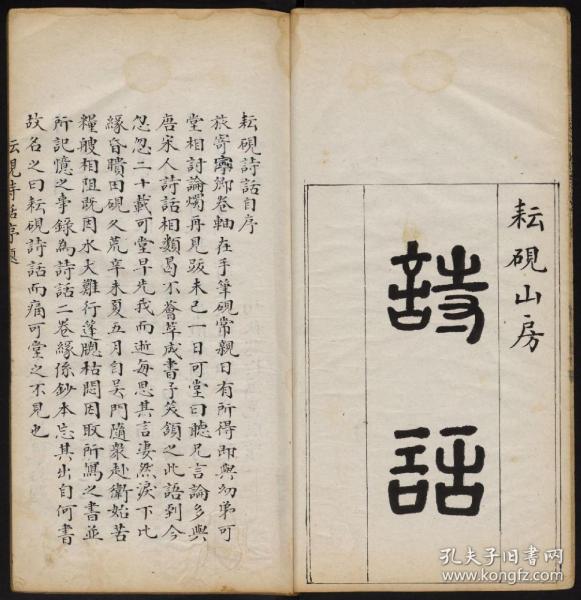 耘硯山房
詩話
耘硯詩話自序
旅寄寧卿卷軸在手筆硯常親日有所得即與幼弟可
堂相討論燭再見跋未已一日可堂曰聽兄言論多與
唐宋人詩話相類曷不薈萃成書予笑頷之此語到今
忽忽二十載可堂早先我而逝每思其言淒然淚下比
緣昏瞶田硯久荒辛未夏五月自吳門隨眾赴衛始苦
糧艘相阻旣因水大難行蓬牕枯悶因取所寫之書並
所記憶之事錄為詩話二卷緣係鈔本忘其出自何書
故名之曰耘硯詩話而痛可堂之不見也
耘硯詩話序
孔夫子旧书网
www.kongfz.com